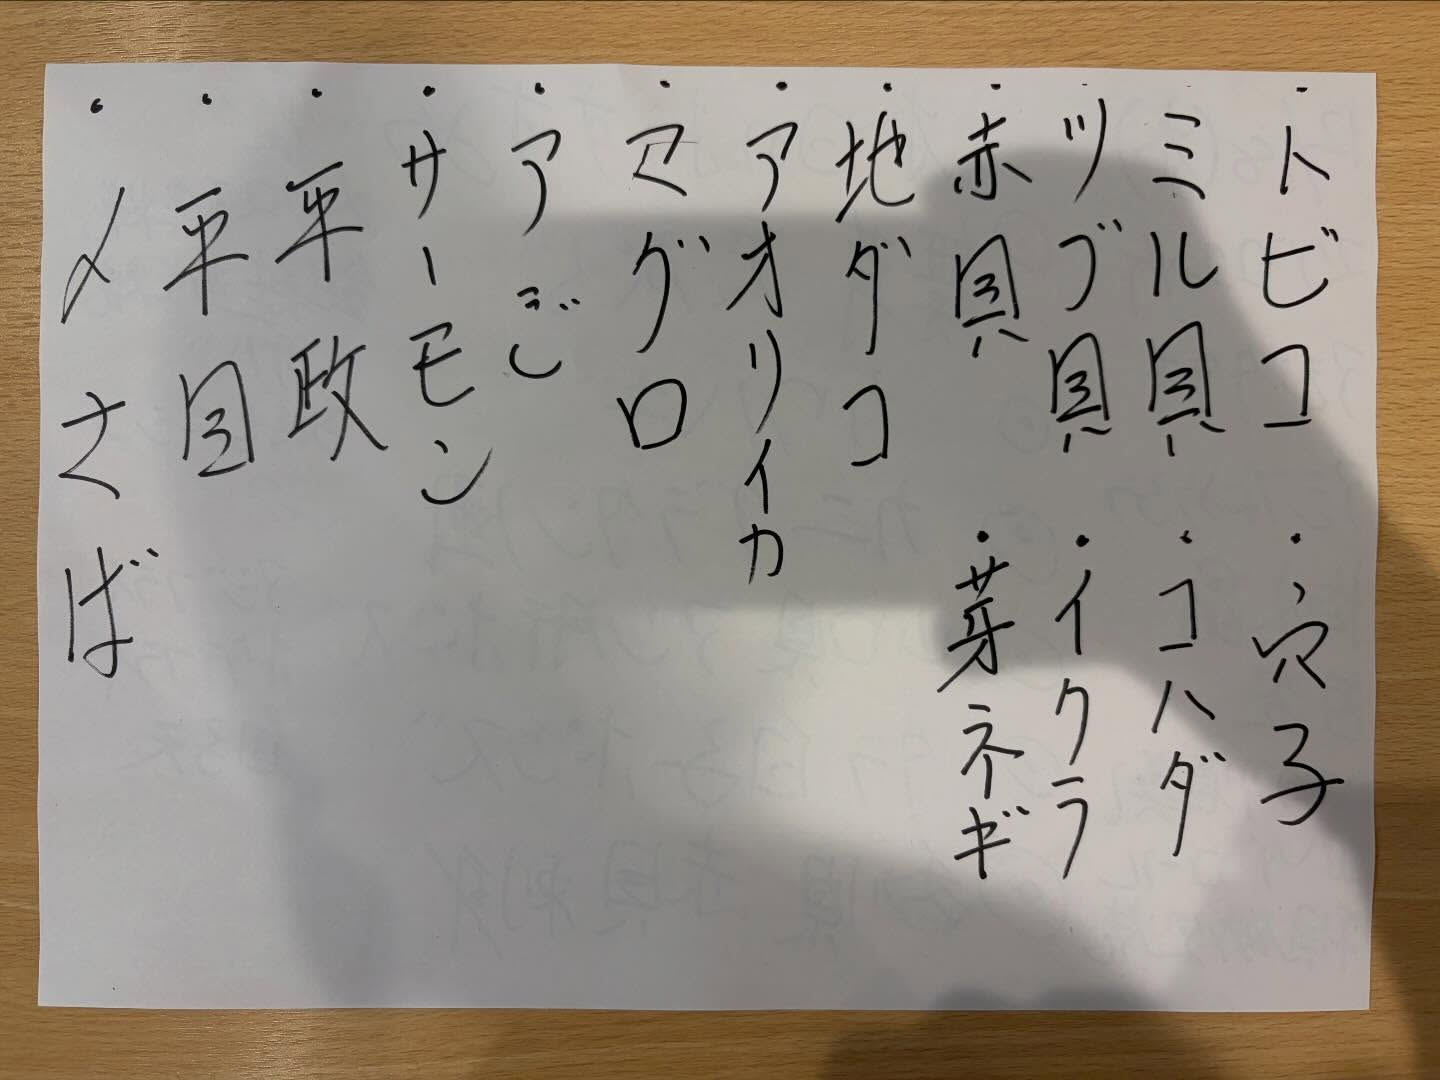 ・トビコ
・ミル貝
・ツブ貝
・赤貝
・地ダコ
・アオリイカ
・マグロ
・アご
・サーモン
・平政
・平目
・〆さば
・穴子
・コハダ
・イクラ
・芽ネギ